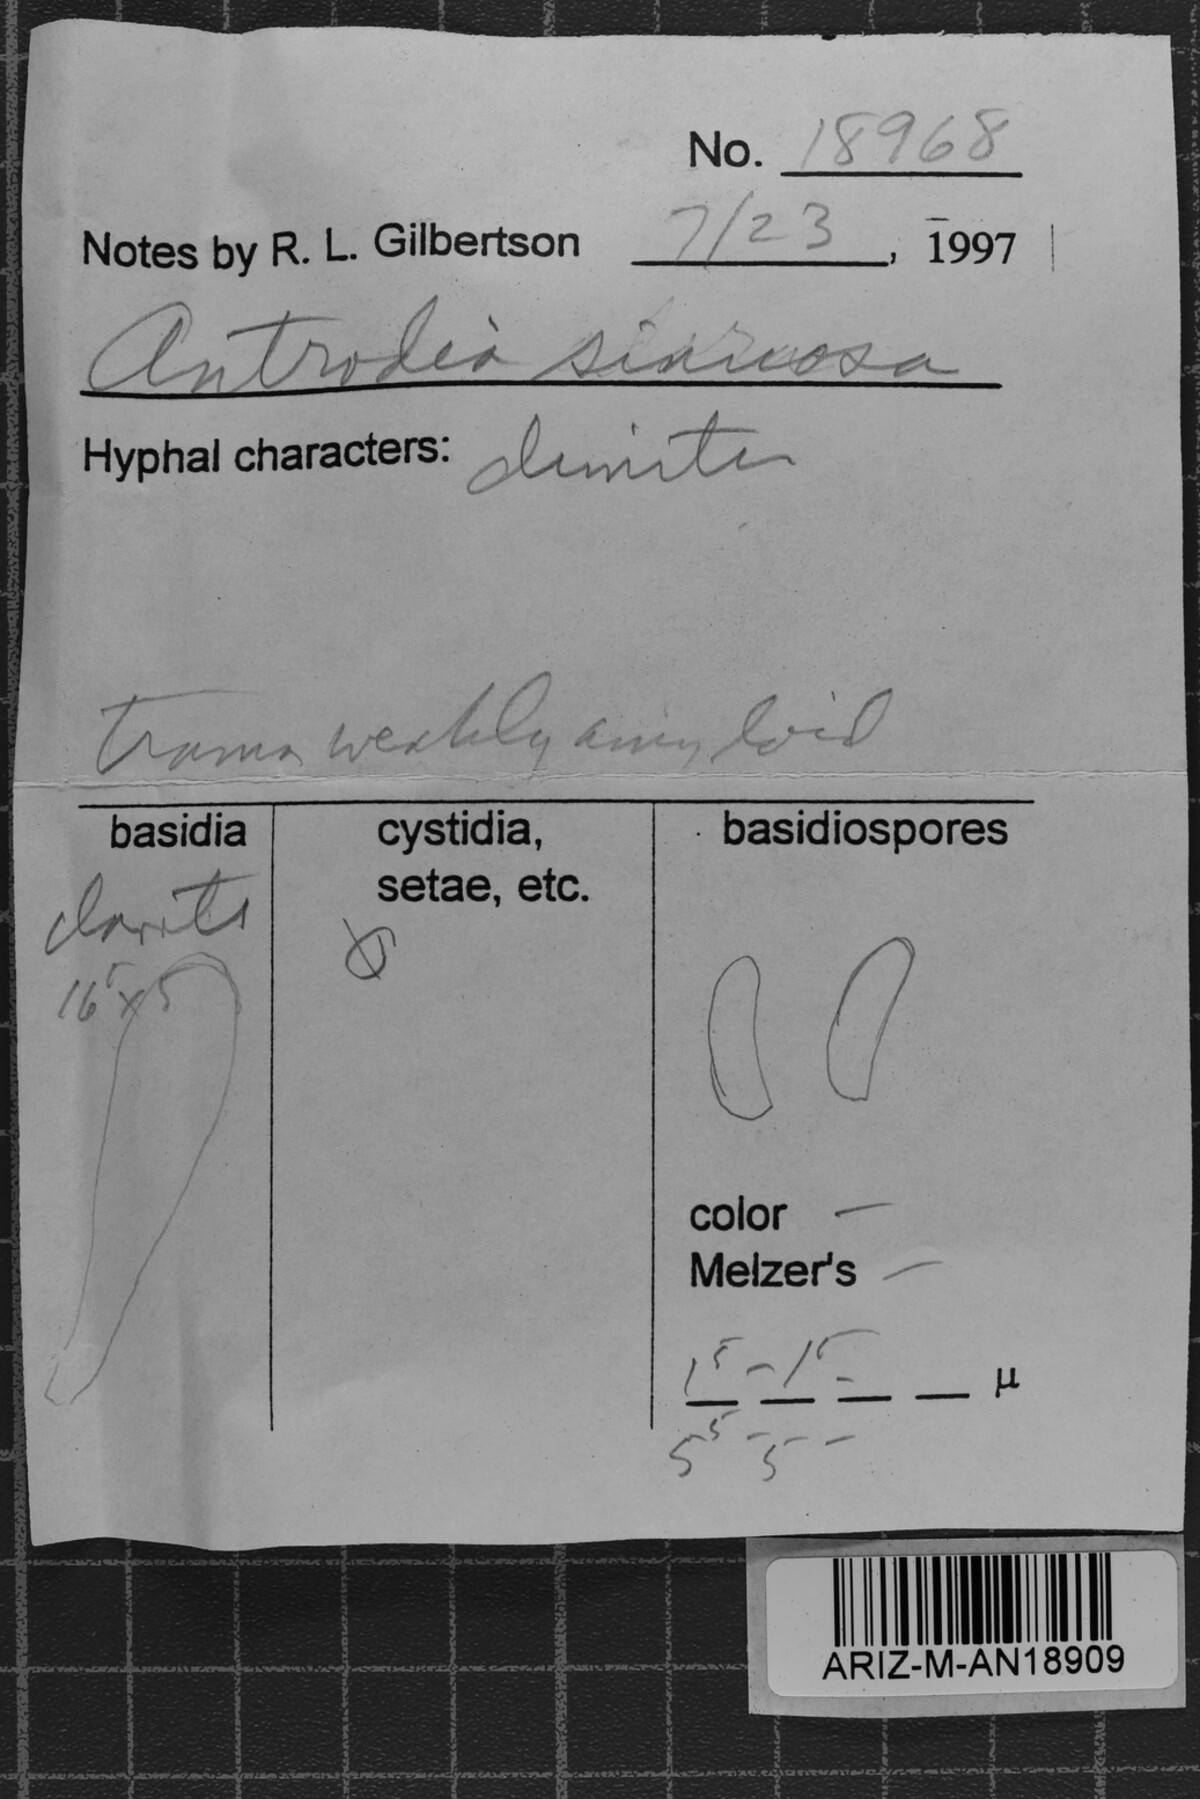 No. 18968
Notes by R. L. Gilbertson 7/23, 1997
Antrodia sinuosa
Hyphal characters: dimitic
trama weakly amyloid
basidia
clavate
16⁵ x 5
cystidia,
setae, etc.
basidiospores
color —
Melzer's —
1⁵ - 1⁵ µ
5⁵ - 5 -
ARIZ-M-AN18909